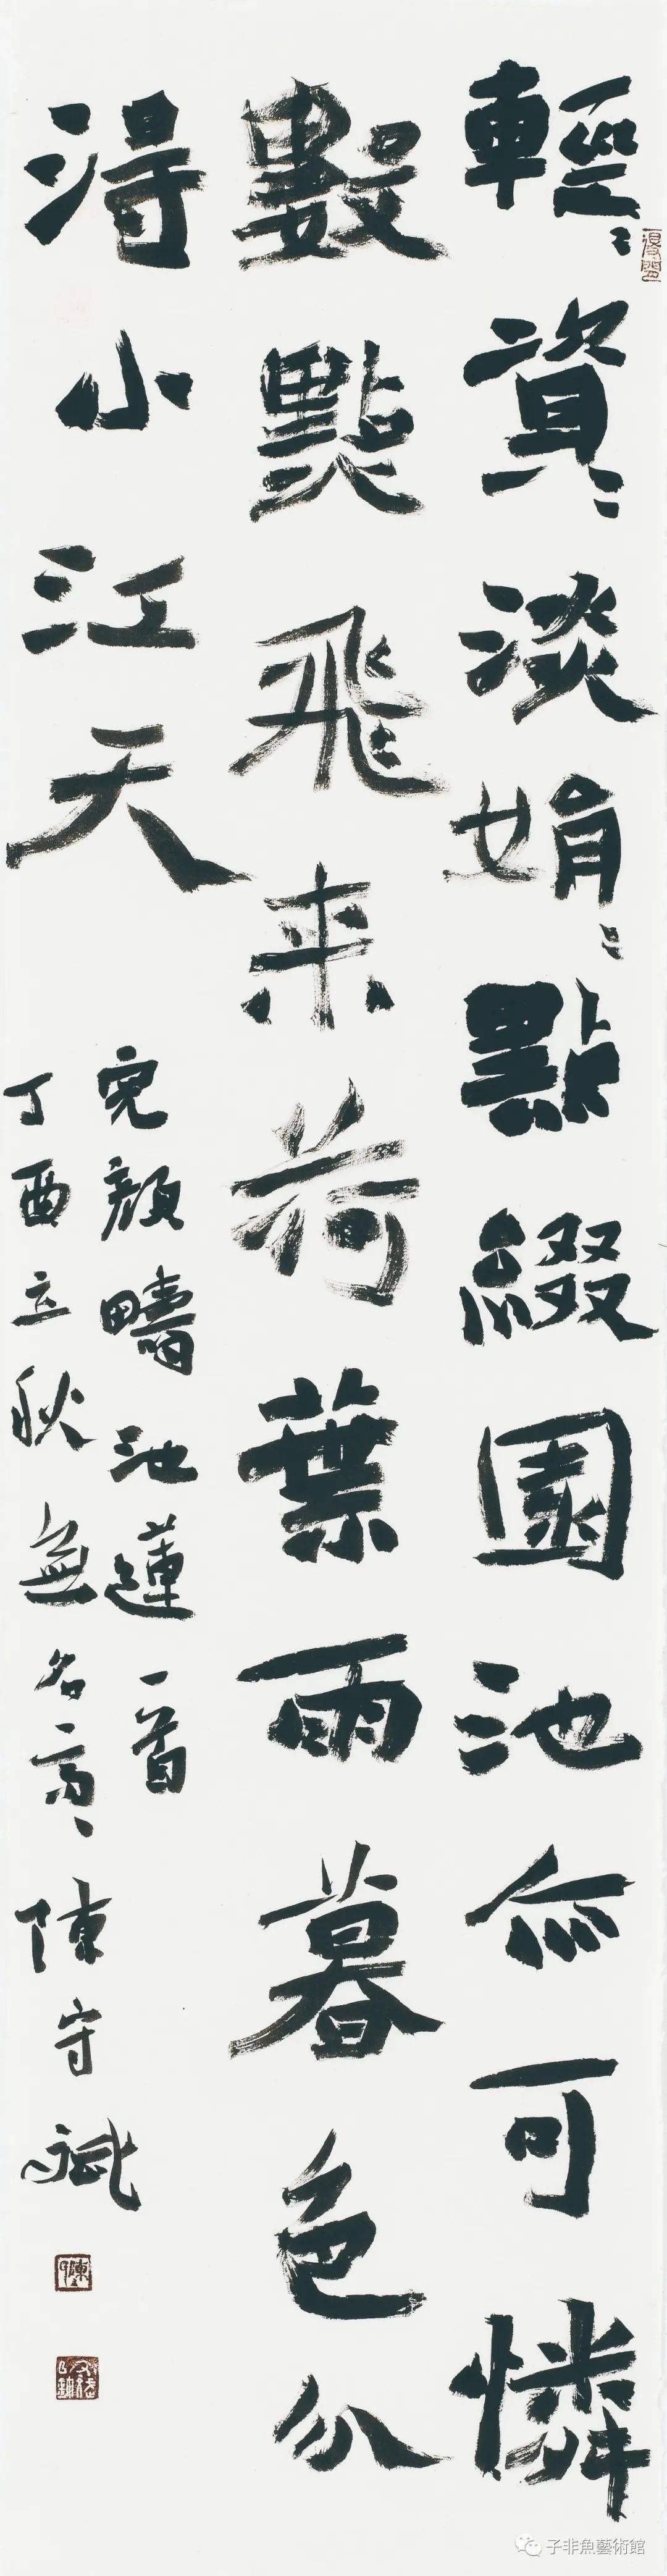 輕〻資淡娟〻點綴園池亦可憐
數點飛来荷葉雨暮色分
得小江天
完顏疇池蓮一首
丁酉立秋無名亭〻陳守斌
子非魚藝術館